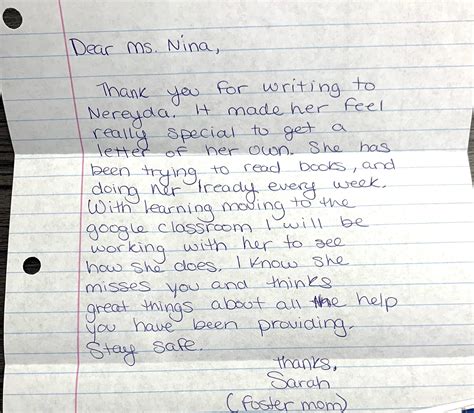 Dear Ms. Nina,
Thank you for writing to
Nereyda. It made her feel
really special to get a
letter of her own. She has
been trying to read books, and
doing her Iready every week.
With learning moving to the
google classroom I will be
working with her to see
how she does. I know she
misses you and thinks
great things about all the help
you have been providing.
Stay safe.
Thanks,
Sarah
(foster mom)